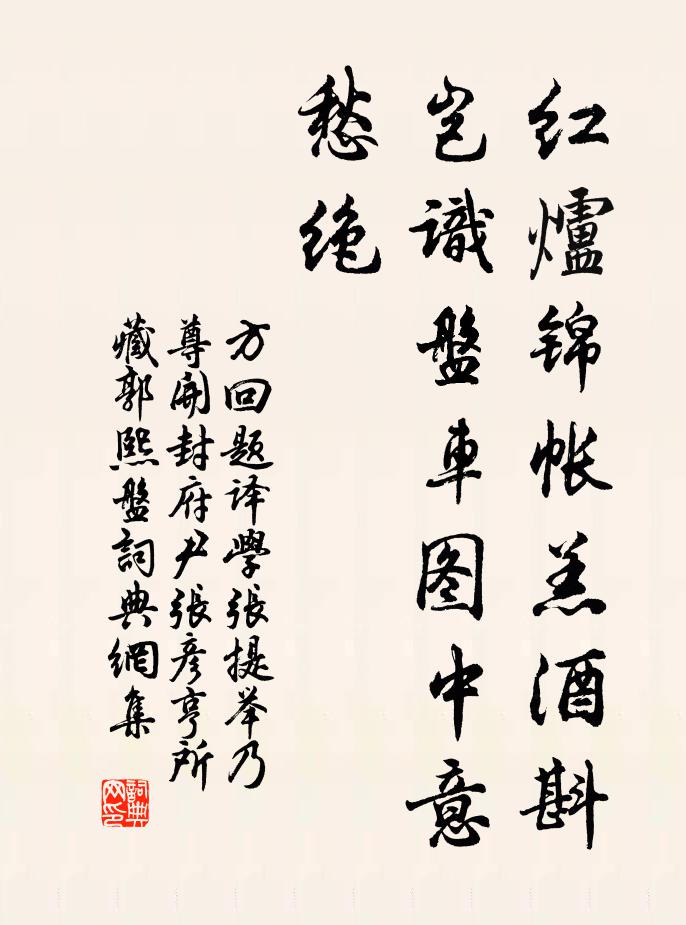 红爐锦帐羔酒斟
岂識盤車图中意
愁绝
方回题译學張提举乃
尊開封府尹張彦亨所
藏郭熙盤詞典網集
詞典网印